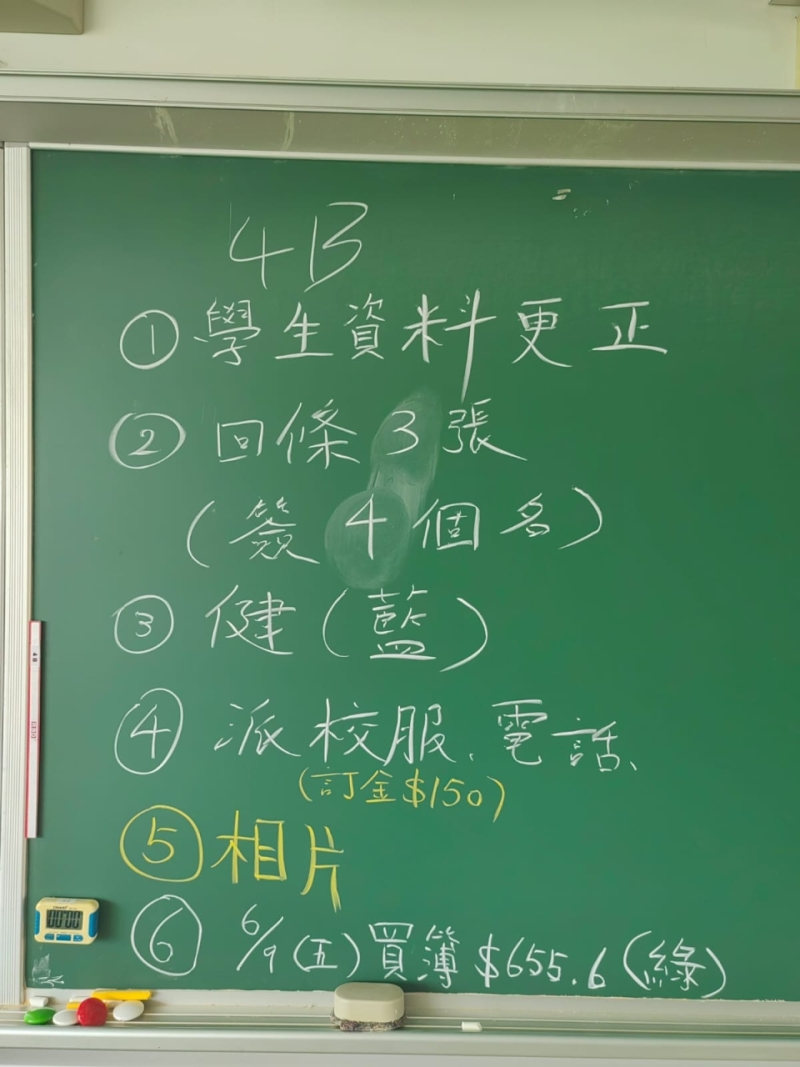 4B
① 學生資料更正
② 回條3張
(簽4個名)
③ 健(藍)
④ 派校服、電話、
(訂金$150)
⑤ 相片
⑥ 6/9(五)買簿$655.6(綠)
00:00
4B